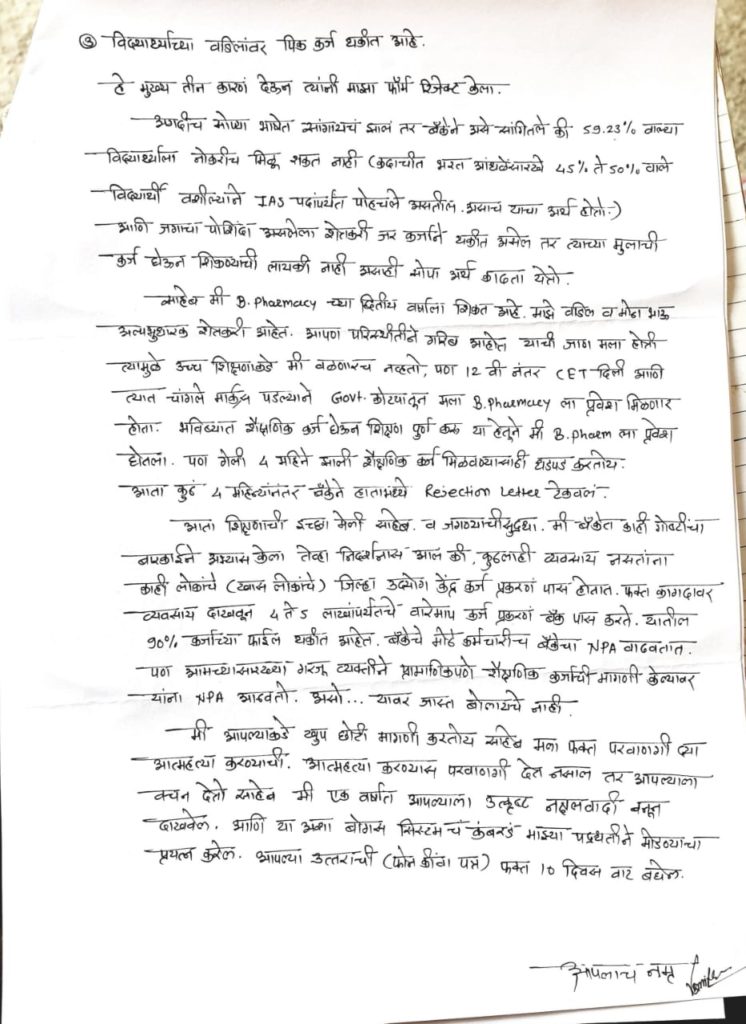 ③ विद्यार्थ्याच्या वडिलांवर पिक कर्ज थकीत आहे.
हे मुख्य तीन कारणं देऊन त्यांनी माझा फॉर्म रिजेक्ट केला.
अगदीच सोप्या भाषेत सांगायचं झालं तर बँकेने असे सांगितले की 59.23% वाल्या
विद्यार्थ्याला नोकरीच मिळू शकत नाही (कदाचीत भरत आंधळेंसारखे 45% ते 50% वाले
विद्यार्थी वशील्याने IAS पदांपर्यंत पोहचले असतील. असाच याचा अर्थ होतो.)
आणि जगाचा पोशिंदा असलेला शेतकरी जर कर्जाने थकीत असेल तर त्याच्या मुलाची
कर्ज घेऊन शिकण्याची लायकी नाही असाही सोपा अर्थ काढता येतो.
साहेब मी B. Pharmacy च्या द्वितीय वर्षाला शिकत आहे. माझे वडिल व मोठा भाऊ
अल्पभुधारक शेतकरी आहेत. आपण परिस्थीतीने गरिब आहोत याची जाण मला होती
त्यामुळे उच्च शिक्षणाकडे मी वळणारच नव्हतो, पण 12 वी नंतर CET दिली आणि
त्यात चांगले मार्क्स पडल्याने Govt. कोट्यातून मला B. Pharmacy ला प्रवेश मिळणार
होता. भविष्यात शैक्षणिक कर्ज घेऊन शिक्षण पुर्ण करू या हेतूने मी B. pharm ला प्रवेश
घेतला. पण गेली 4 महिने झाली शैक्षणिक कर्ज मिळवण्यासाठी धडपड करतोय.
आता कुठं 4 महिन्यांनंतर बँकेने हातामध्ये Rejection Letter टेकवलं.
आता शिक्षणाची इच्छा मेली साहेब. व जगण्याचीसुद्धा. मी बँकेत काही गोष्टींचा
बारकाईने अभ्यास केला तेव्हा निदर्शनास आलं की, कुठलाही व्यवसाय नसतांना
काही लोकांचे (खास लोकांचे) जिल्हा उद्योग केंद्र कर्ज प्रकरणं पास होतात. फक्त कागदावर
व्यवसाय दाखवून 4 ते 5 लाखांपर्यंतचे वारेमाप कर्ज प्रकरणं बँक पास करते. यातील
90% कर्जाच्या फाईल थकीत आहेत. बँकेचे मोठे कर्मचारीच बँकेचा NPA वाढवतात.
पण आमच्यासारख्या गरजू व्यक्तीने प्रामाणिकपणे शैक्षणिक कर्जाची मागणी केल्यावर
यांना NPA आढवतो. असो... यावर जास्त बोलायचे नाही.
मी आपल्याकडे खुप छोटी मागणी करतोय साहेब मला फक्त परवाणगी द्या
आत्महत्या करण्याची. आत्महत्या करण्यास परवाणगी देत नसाल तर आपल्याला
वचन देतो साहेब मी एक वर्षात आपल्याला उत्कृष्ट नक्षलवादी बनून
दाखवेल. आणि या अशा बोगस सिस्टमचं कंबरडं माझ्या पद्धतीने मोडण्याचा
प्रयत्न करेल. आपल्या उत्तराची (फोन कींवा पत्र) फक्त 10 दिवस वाट बघेल.
आपलाच नम्र